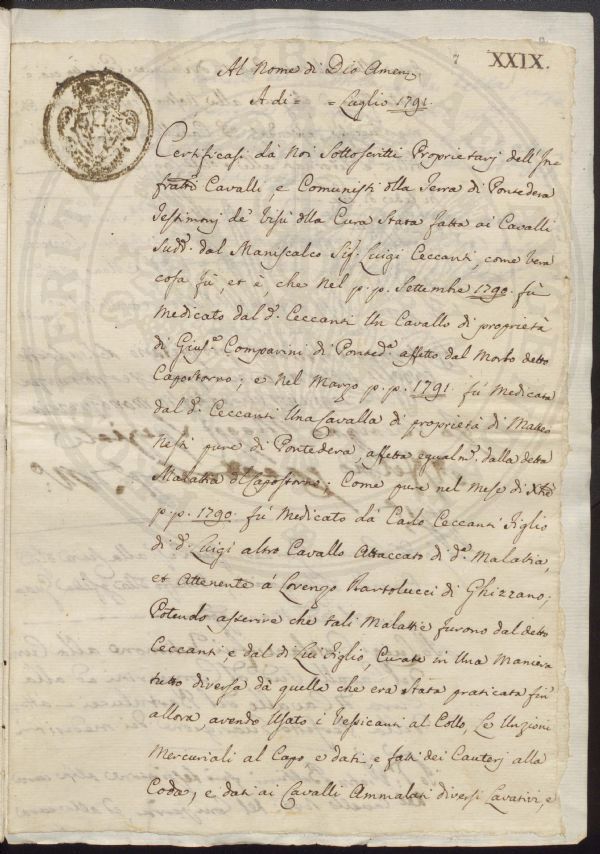 7 XXIX.
Al Nome di Dio Amen
A di = = Luglio 1791.
Certificasi dà Noi Sottoscritti Proprietarj dell'In
fratti Cavalli, e Comunisti della Terra di Pontedera
Testimonj de' Visu della Cura Stata fatta ai Cavalli
Sudd.i dal Maniscalco Sig. Luigi Ceccanti, come vera
cosa fù, et è, che Nel p. p. Settembre 1790. fù
Medicato dal d.o Ceccanti Un Cavallo di proprietà
di Gius.e Comparini di Ponted.a affetto dal Morbo detto
Capostorno; e Nel Marzo p. p. 1791. fù Medicata
dal d.o Ceccanti Una Cavalla di proprietà di Matteo
Nesti pure di Pontedera affetta egualm.e dalla detta
Malattia di Capostorno: Come pure nel Mese di Xbre
p. p. 1790. fù Medicato dà Carlo Ceccanti Figlio
di d.o Luigi altro Cavallo Attaccato di d.a Malattia,
et Attenente à Lorenzo Bartolucci di Ghizzano;
Potendo asserire che tali Malattie furono dal detto
Ceccanti, e dal di Lui Figlio, Curate in Una Maniera
tutto diversa dà quella che era stata praticata fin'
allora, avendo Usato i Vessicanti al Collo, Le Unzioni
Mercuriali al Capo, e dati, e fatti dei Cauterj alla
Coda, e dati ai Cavalli Ammalati diversi Lavativi, e